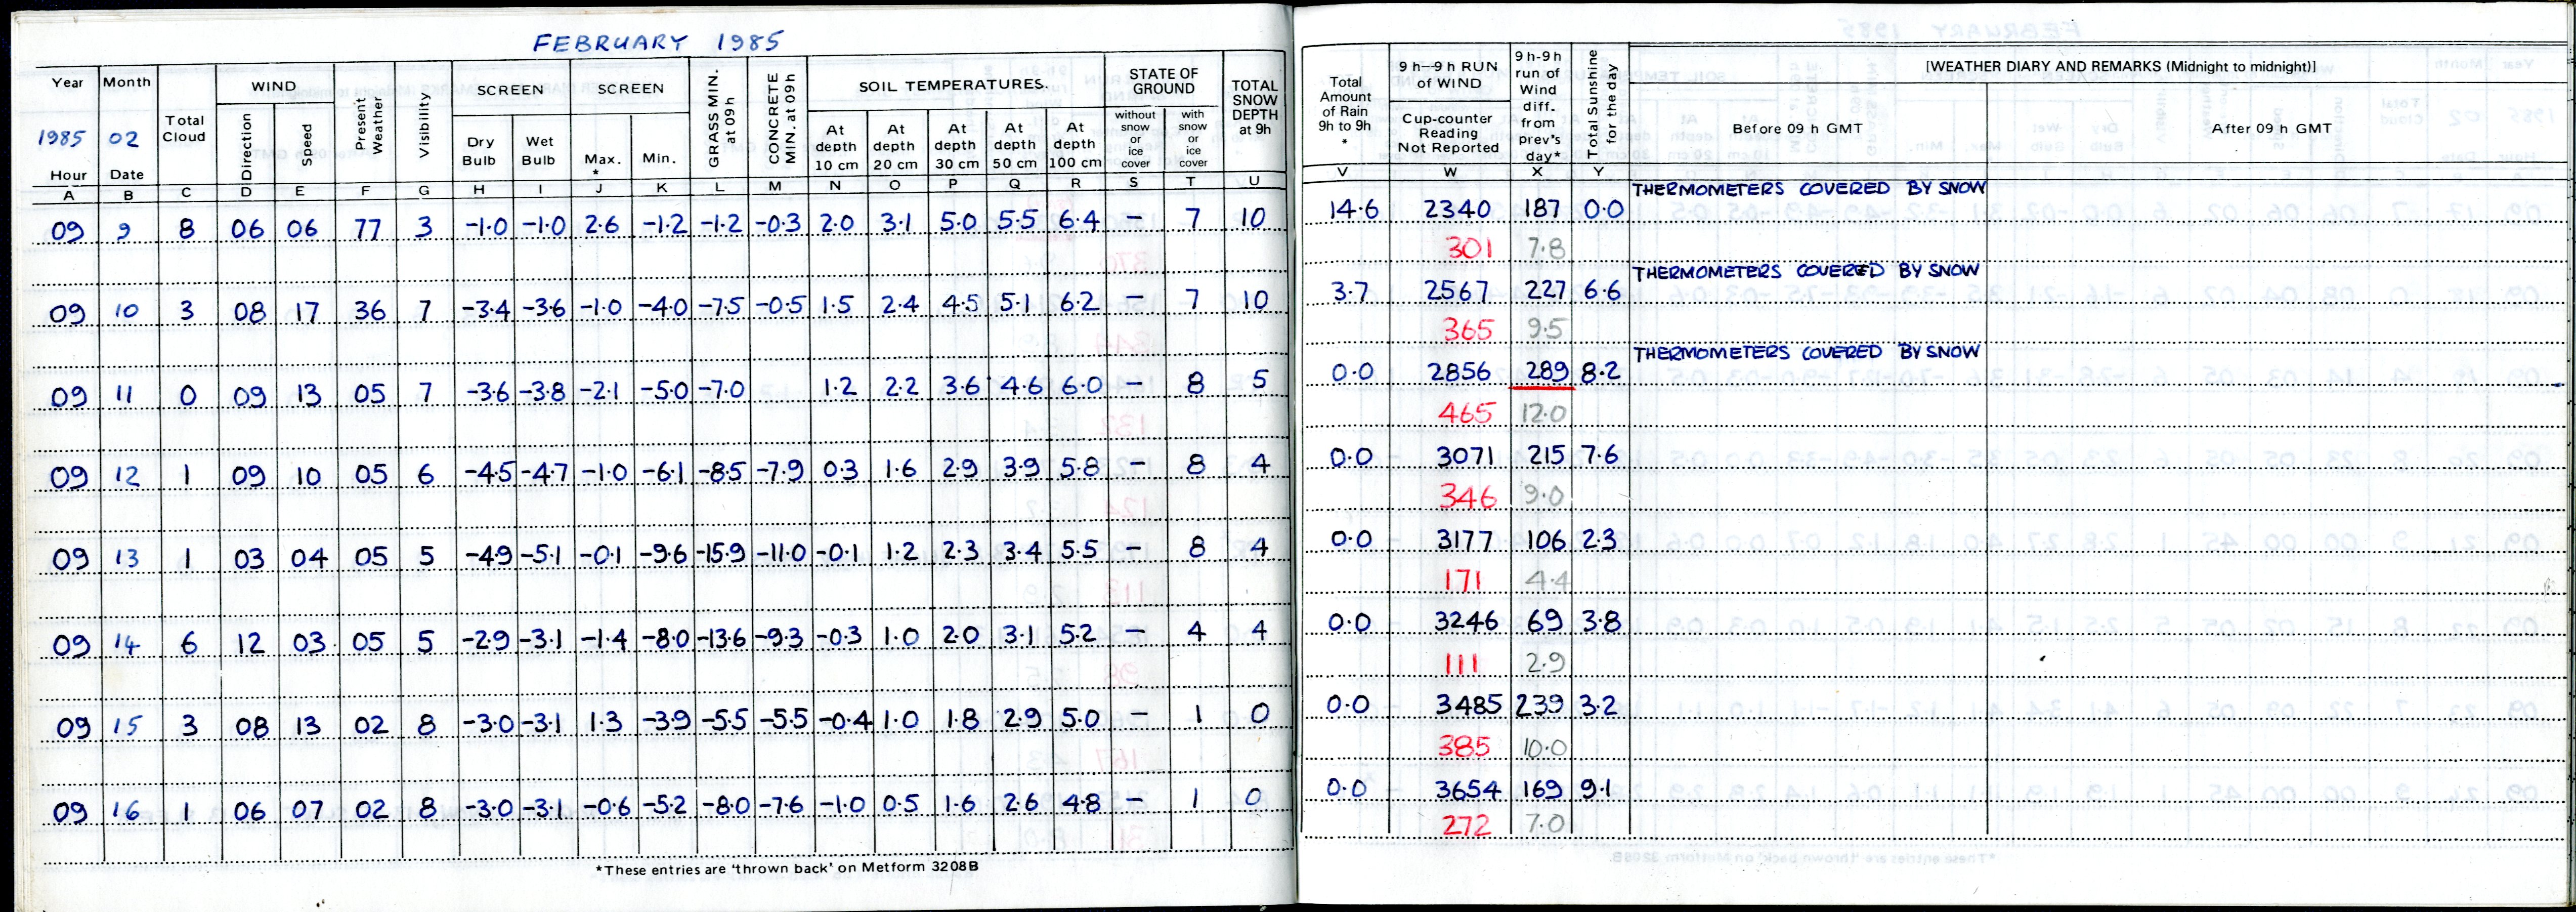 FEBRUARY 1985
Year Month Total Cloud WIND Direction Speed Present Weather Visibility SCREEN Dry Bulb Wet Bulb SCREEN Max. * Min. GRASS MIN. at 09h CONCRETE MIN. at 09h SOIL TEMPERATURES. At depth 10 cm At depth 20 cm At depth 30 cm At depth 50 cm At depth 100 cm STATE OF GROUND without snow or ice cover with snow or ice cover TOTAL SNOW DEPTH at 9h Total Amount of Rain 9h to 9h * 9h–9h RUN of WIND Cup-counter Reading Not Reported 9h-9h run of Wind diff. from prev's day* Total Sunshine for the day [WEATHER DIARY AND REMARKS (Midnight to midnight)]
1985 02 Before 09 h GMT After 09 h GMT
Hour Date
A B C D E F G H I J K L M N O P Q R S T U V W X Y
THERMOMETERS COVERED BY SNOW
09 9 8 06 06 77 3 -1.0 -1.0 2.6 -1.2 -1.2 -0.3 2.0 3.1 5.0 5.5 6.4 – 7 10 14.6 2340 187 0.0
301 7.8
THERMOMETERS COVERED BY SNOW
09 10 3 08 17 36 7 -3.4 -3.6 -1.0 -4.0 -7.5 -0.5 1.5 2.4 4.5 5.1 6.2 – 7 10 3.7 2567 227 6.6
365 9.5
THERMOMETERS COVERED BY SNOW
09 11 0 09 13 05 7 -3.6 -3.8 -2.1 -5.0 -7.0 1.2 2.2 3.6 4.6 6.0 – 8 5 0.0 2856 289 8.2
465 12.0
09 12 1 09 10 05 6 -4.5 -4.7 -1.0 -6.1 -8.5 -7.9 0.3 1.6 2.9 3.9 5.8 – 8 4 0.0 3071 215 7.6
346 9.0
09 13 1 03 04 05 5 -4.9 -5.1 -0.1 -9.6 -15.9 -11.0 -0.1 1.2 2.3 3.4 5.5 – 8 4 0.0 3177 106 2.3
171 4.4
09 14 6 12 03 05 5 -2.9 -3.1 -1.4 -8.0 -13.6 -9.3 -0.3 1.0 2.0 3.1 5.2 – 4 4 0.0 3246 69 3.8
111 2.9
09 15 3 08 13 02 8 -3.0 -3.1 1.3 -3.9 -5.5 -5.5 -0.4 1.0 1.8 2.9 5.0 – 1 0 0.0 3485 239 3.2
385 10.0
09 16 1 06 07 02 8 -3.0 -3.1 -0.6 -5.2 -8.0 -7.6 -1.0 0.5 1.6 2.6 4.8 – 1 0 0.0 3654 169 9.1
272 7.0
*These entries are 'thrown back' on Metform 3208B